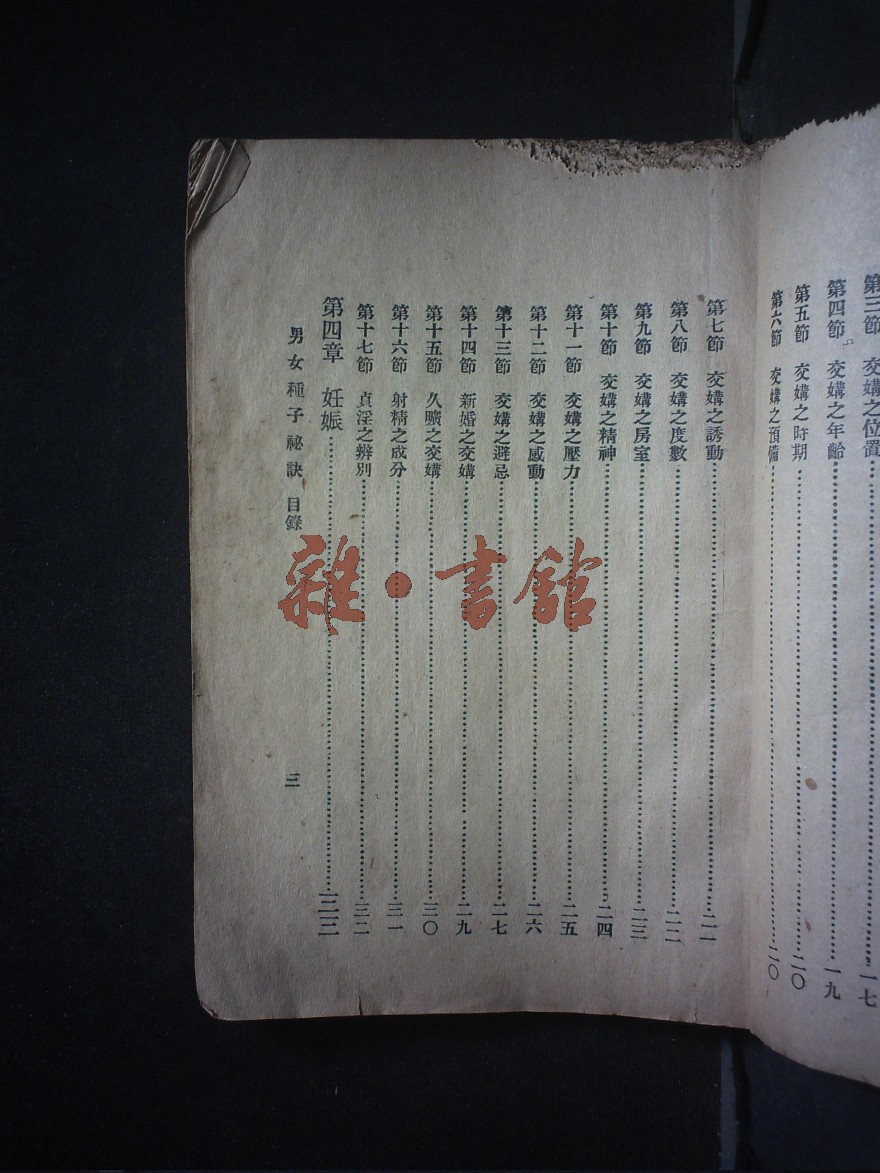 第三節 交媾之位置 一七
第四節 交媾之年齡 一九
第五節 交媾之時期 二〇
第六節 交媾之預備 二〇
第七節 交媾之誘動 二一
第八節 交媾之度數 二二
第九節 交媾之房室 二三
第十節 交媾之精神 二四
第十一節 交媾之壓力 二五
第十二節 交媾之感動 二六
第十三節 交媾之避忌 二七
第十四節 新婚之交媾 二九
第十五節 久曠之交媾 三〇
第十六節 射精之成分 三一
第十七節 貞淫之辨別 三二
第四章 妊娠
男女種子祕訣 目錄 三
雜·書館